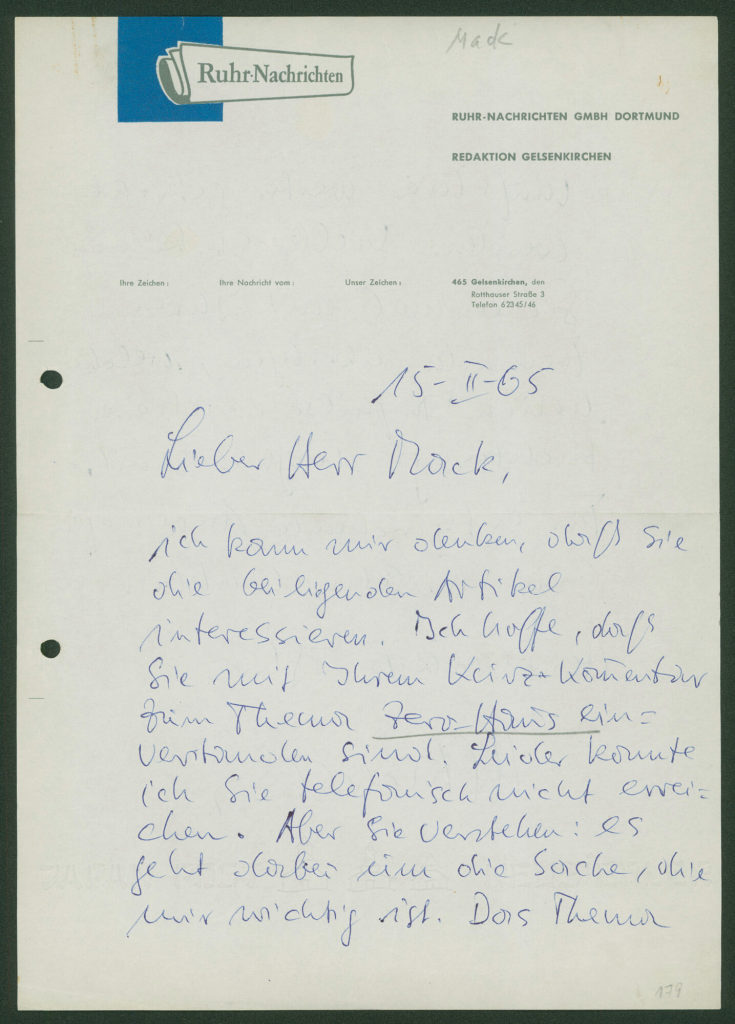 Mack
Ruhr-Nachrichten
RUHR-NACHRICHTEN GMBH DORTMUND
REDAKTION GELSENKIRCHEN
Ihre Zeichen: Ihre Nachricht vom: Unser Zeichen: 465 Gelsenkirchen, den
Rotthauser Straße 3
Telefon 62345/46
15-II-65
Lieber Herr Mack,
ich kann mir denken, daß Sie
die beiliegenden Artikel
interessieren. Ich hoffe, daß
Sie mit Ihrem Kurz-Kom̄entar
zum Thema Zero-Haus ein=
verstanden sind. Leider konnte
ich Sie telefonisch nicht errei=
chen. Aber Sie verstehen: es
geht dabei um die Sache, die
mir wichtig ist. Das Thema
179